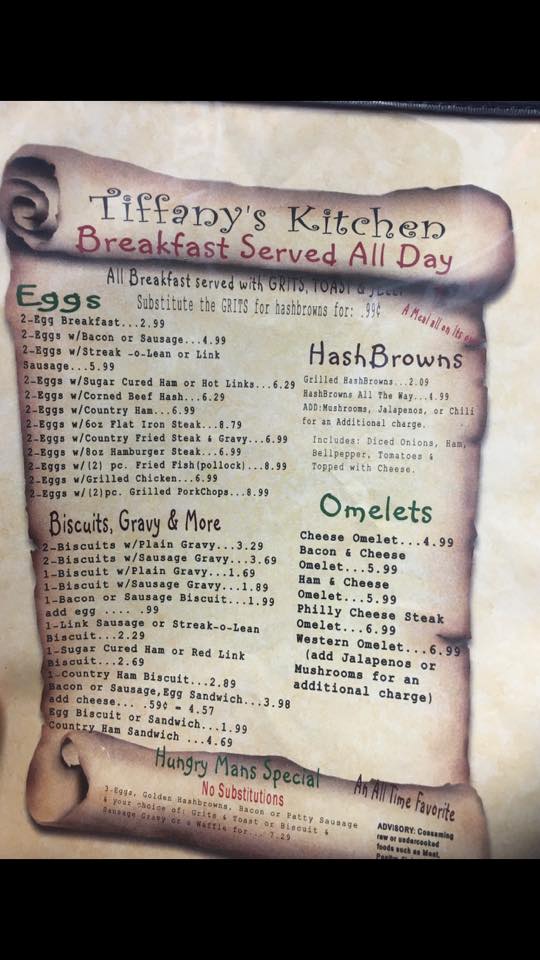 Tiffany's Kitchen
Breakfast Served All Day
All Breakfast served with GRITS, TOAST &
Substitute the GRITS for hashbrowns for: .99¢
A Meal all on its
Eggs
2-Egg Breakfast...2.99
2-Eggs w/Bacon or Sausage...4.99
2-Eggs w/Streak -o-Lean or Link
Sausage...5.99
2-Eggs w/Sugar Cured Ham or Hot Links...6.29
2-Eggs w/Corned Beef Hash...6.29
2-Eggs w/Country Ham...6.99
2-Eggs w/6oz Flat Iron Steak...8.79
2-Eggs w/Country Fried Steak & Gravy...6.99
2-Eggs w/8oz Hamburger Steak...6.99
2-Eggs w/(2) pc. Fried Fish(pollock)...8.99
2-Eggs w/Grilled Chicken...6.99
2-Eggs w/(2)pc. Grilled PorkChops...8.99
HashBrowns
Grilled HashBrowns...2.09
HashBrowns All The Way...4.99
ADD:Mushrooms, Jalapenos, or Chili
for an Additional charge.
Includes: Diced Onions, Ham,
Bellpepper, Tomatoes &
Topped with Cheese.
Biscuits, Gravy & More
2-Biscuits w/Plain Gravy...3.29
2-Biscuits w/Sausage Gravy...3.69
1-Biscuit w/Plain Gravy...1.69
1-Biscuit w/Sausage Gravy...1.89
1-Bacon or Sausage Biscuit...1.99
add egg .... .99
1-Link Sausage or Streak-o-Lean
Biscuit...2.29
1-Sugar Cured Ham or Red Link
Biscuit...2.69
1-Country Ham Biscuit...2.89
Bacon or Sausage,Egg Sandwich...3.98
add cheese... .59¢ = 4.57
Egg Biscuit or Sandwich...1.99
Country Ham Sandwich ...4.69
Omelets
Cheese Omelet...4.99
Bacon & Cheese
Omelet...5.99
Ham & Cheese
Omelet...5.99
Philly Cheese Steak
Omelet...6.99
Western Omelet...6.99
(add Jalapenos or
Mushrooms for an
additional charge)
Hungry Mans Special
No Substitutions
3-Eggs, Golden Hashbrowns, Bacon or Patty Sausage
& your choice of: Grits & Toast or Biscuit &
Sausage Gravy or a Waffle for... 7.29
An All Time Favorite
ADVISORY: Consuming
raw or undercooked
foods such as Meat,